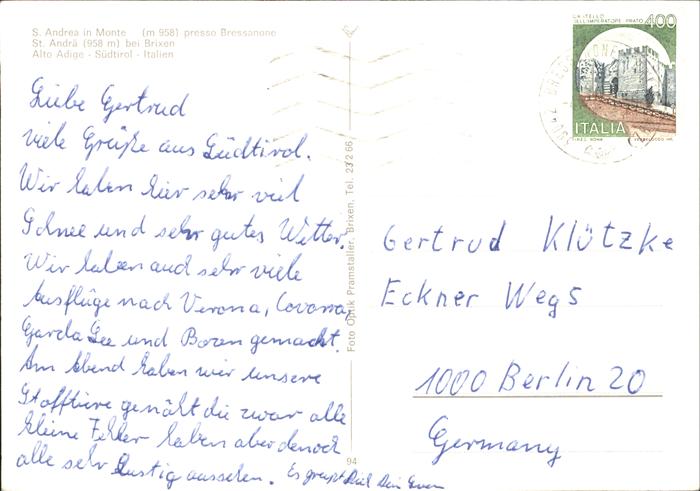 S. Andrea in Monte (m 958) presso Bressanone
St. Andrä (958 m) bei Brixen
Alto Adige - Südtirol - Italien
CASTELLO DELL'IMPERATORE PRATO 400
ITALIA
Liebe Gertrud
viele Grüße aus Südtirol.
Wir haben hier sehr viel
Schnee und sehr gutes Wetter.
Wir haben auch sehr viele
Ausflüge nach Verona,
Garda See und Bozen gemacht.
Am Abend haben wir unsere
Stofftiere genäht die zwar alle
kleine Fehler haben aber denoch
alle sehr Lustig aussehen. Es grüßt Dich Dein
Foto Optik Pramstaller, Brixen, Tel. 23 2 66
94
Gertrud Klützke
Eckner Weg 5
1000 Berlin 20
Germany